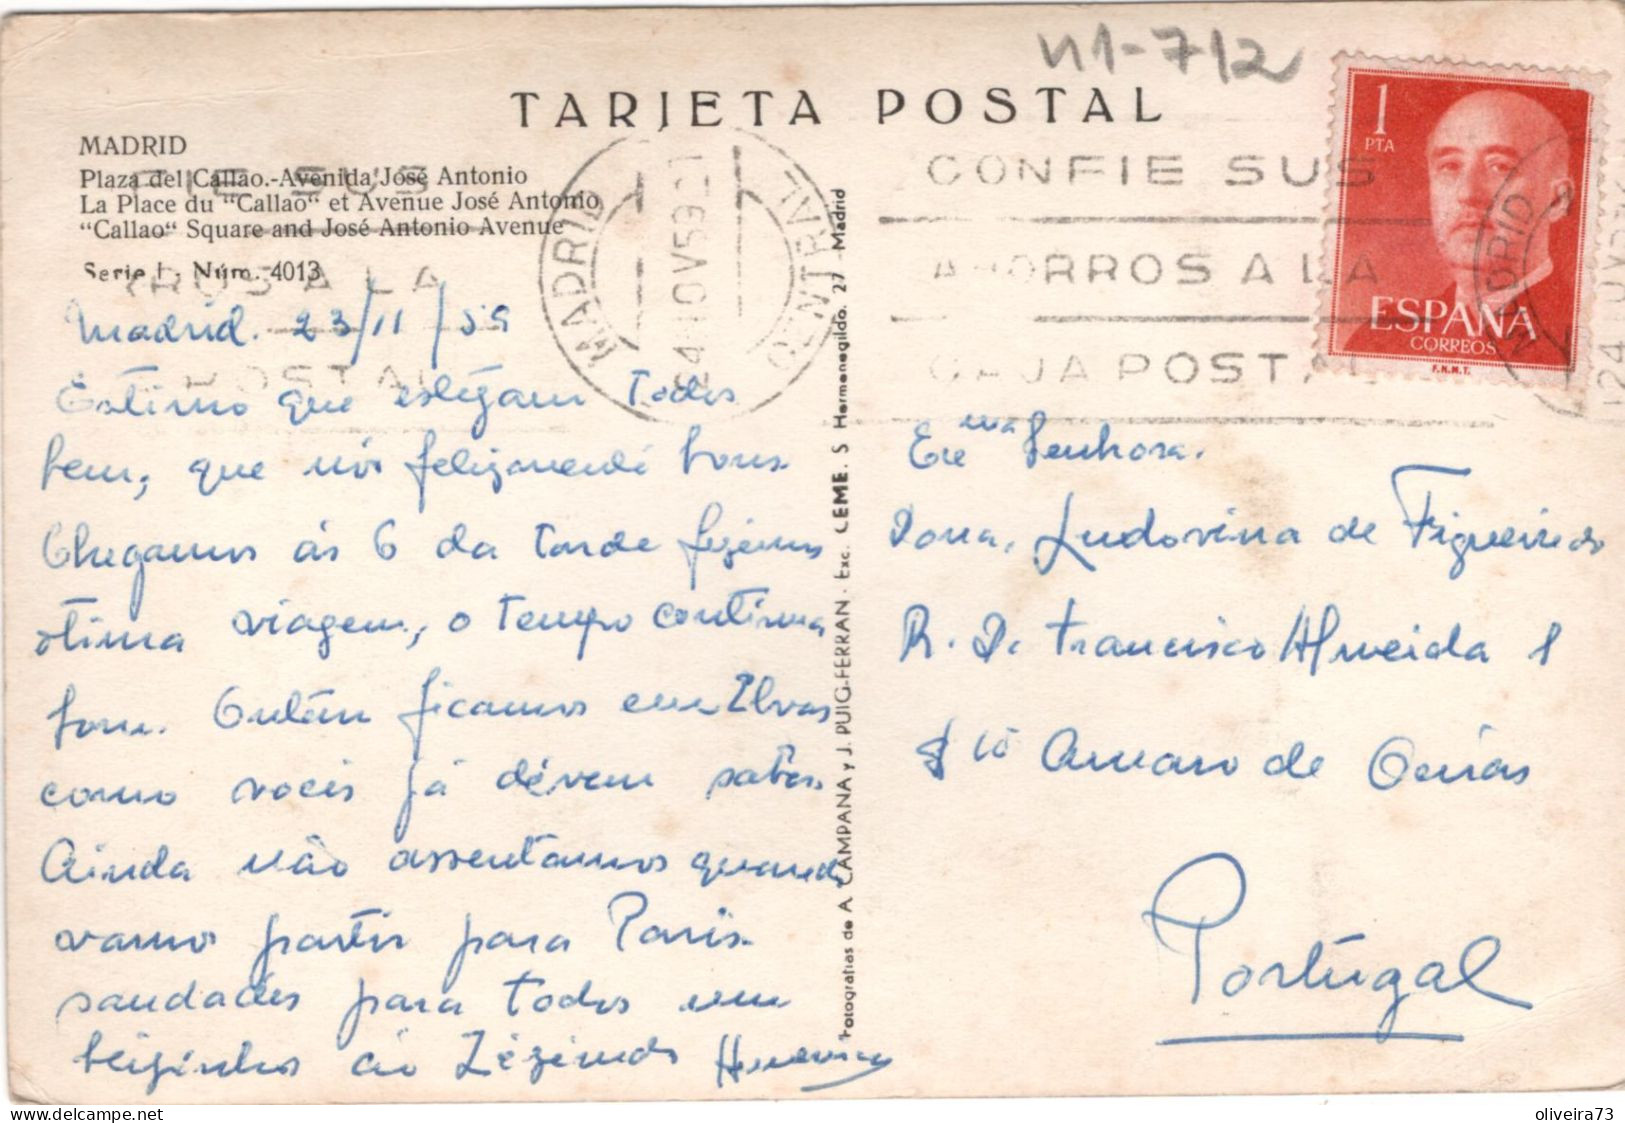 n1-712
TARJETA POSTAL
MADRID
Plaza del Callao.-Avenida José Antonio
La Place du "Callao" et Avenue José Antonio
"Callao" Square and José Antonio Avenue
Serie I - Núm. 4013
Madrid. 23/11/59
Estimo que estéjam todos
bem, que nós felizmente bons.
Chegamos ás 6 da tarde fizemos
otima viagem, o tempo continua
bom. Ontem ficamos em Elvas
como voceis já dévem saber.
Ainda não assentamos quando
vamos partir para Paris.
saudades para todos um
beijinho ao Zézinho
MADRID CENTRAL
24 NOV 59
CONFIE SUS
AHORROS A LA
CAJA POSTAL
1
PTA
ESPAÑA
CORREOS
F.N.M.T.
Fotografias de A. CAMPAÑA y J. PUIG-FERRAN. Exc. LEME. S Hermenegildo. 27 Madrid
Exe ma Senhora.
Dona, Ludovina de Figueiredo
R. D. Francisco Almeida 1
Sto Amaro de Oeiras
Portugal
oliveira73